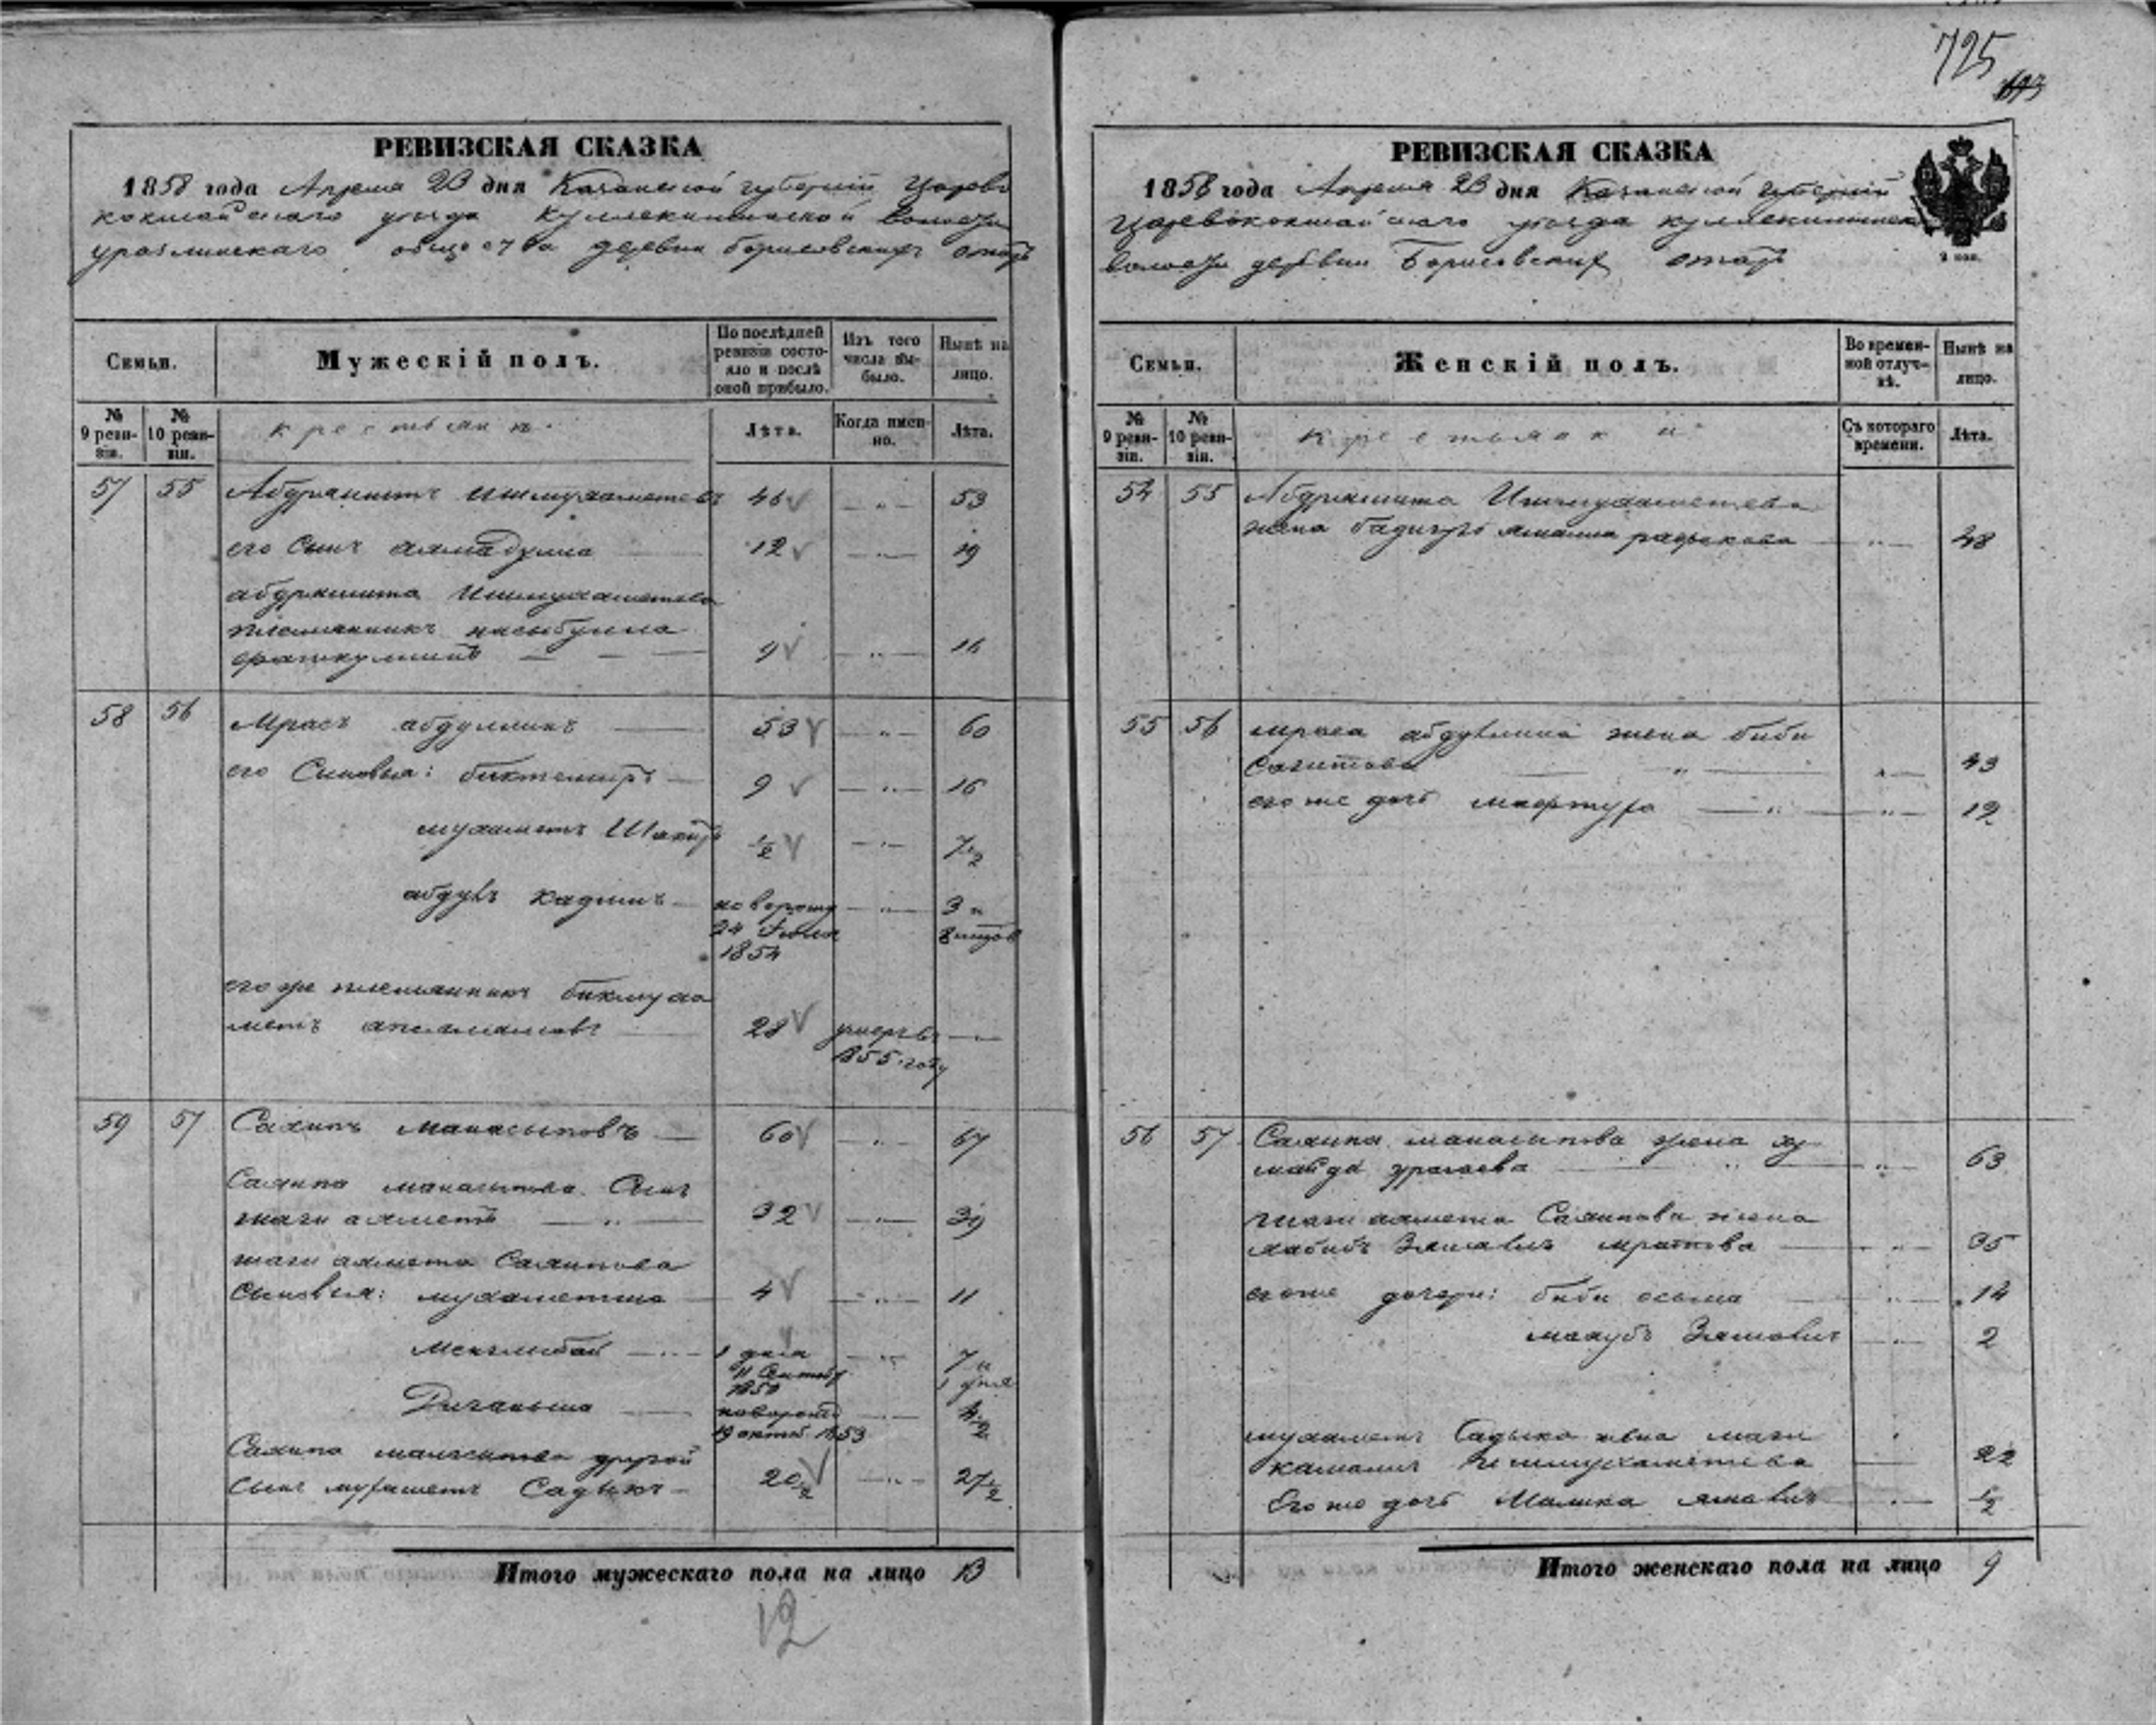 725
РЕВИЗСКАЯ СКАЗКА
1858 года Апреля 23 дня Казанской губернiи Царево
кокшайскаго уезда Кулле-киминской волости
уразлинскаго общества деревни Борисовских отар
Семьи.
Мужескій полъ.
По послѣдней ревизіи состояло и послѣ оной прибыло.
Изъ того числа выбыло.
Нынѣ на лицо.
№ 9 ревизіи.
№ 10 ревизіи.
крестьянъ
Лѣта.
Когда именно.
Лѣта.
57 55 Абдрашитъ Ишмухаметевъ 46 „ 53
его сынъ 12 „ 19
абдрашита Ишмухаметева
племянникъ насыбулла
9 „ 16
58 56 Мрасъ абдуллинъ 53 „ 60
его Сыновья: биктемиръ 9 „ 16
мухаметъ Шакиръ 1/2 „ 7 1/2
абдулъ кадымъ новорожд „ 3 и
24 Июля 8 мцов
1854
его же племянникъ бикмуха
метъ 28 умеръ въ „
1855 году
59 57 Салипъ манасыповъ 60 „ 67
Салипа манасыпова Сынъ
шаги ахметъ „ 32 „ 39
шаги ахмета Салипова
Сыновья: мухаметша 4 „ 11
Менглибай „ 1 дня „ 7 и
11 Сентябр 1 дня
1850
новорожд „ 4 1/2
19 октяб 1853
Салипа манасыпова другой
Сынъ мухаметъ Садыкъ 20 1/2 „ 27 1/2
Итого мужескаго пола на лицо 13
12
РЕВИЗСКАЯ СКАЗКА
1858 года Апреля 23 дня Казанской губернiи
Царевококшайскаго уезда Кулле-киминской
волости деревни Борисовских отар
2 коп.
Семьи.
Женскій полъ.
Во временной отлучкѣ.
Нынѣ на лицо.
№ 9 ревизіи.
№ 10 ревизіи.
крестьянки
Съ котораго времени.
Лѣта.
54 55 Абдрашита Ишмухаметева
жена „ 48
55 56 мраса абдуллина жена биби
Сагитова „ „ 43
его же дочь „ „ 12
56 57 Салипа манасыпова жена ху
майда „ „ 63
шаги ахмета Салипова жена
„ 35
его же дочери: биби „ 14
„ 2
мухаметъ Садыка жена маги
камалия Ишмухаметева 22
Его же дочь Малика „ 1/2
Итого женскаго пола на лицо 9